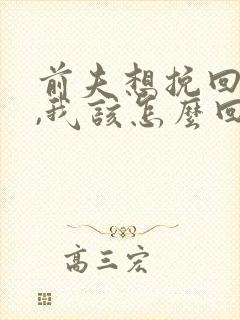 前夫想挽回
,我该怎麼回
高三宏